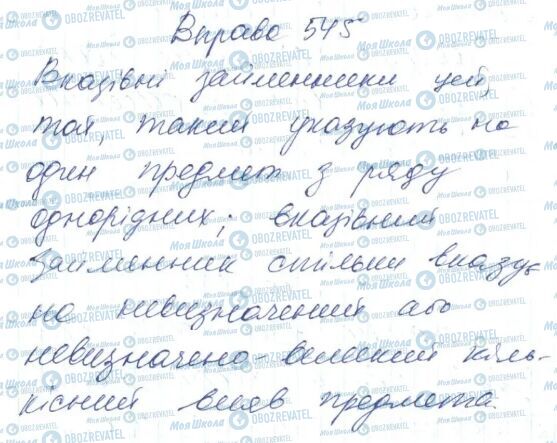 Вправа 545
Вказівні займенники цей,
той, такий указують на
один предмет з ряду
однорідних; вказівний
займенник стільки вказує
на невизначений або
невизначено-великий кіль-
кісний вияв предмета.